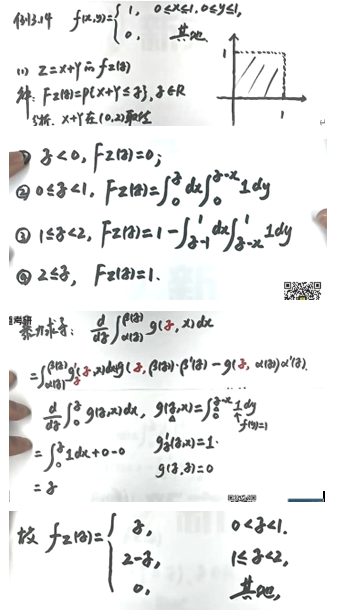 例3.14 f(x,y)={1, 0≤x≤1, 0≤y≤1,
0, 其他
(1) Z=X+Y的f_Z(z)
解: F_Z(z)=P{X+Y≤z}, z∈R
分析: X+Y在(0,2)取值
1
1
① z<0, F_Z(z)=0;
② 0≤z<1, F_Z(z)=∫_0^z dx∫_0^{z-x} 1dy
③ 1≤z<2, F_Z(z)=1-∫_{z-1}^1 dx∫_{z-x}^1 1dy
④ 2≤z, F_Z(z)=1.
暴力求导: d/dz ∫_{α(z)}^{β(z)} g(z,x)dx
=∫_{α(z)}^{β(z)} g'_z(z,x)dx+g(z,β(z))·β'(z)-g(z,α(z))α'(z).
d/dz ∫_0^z g(z,x)dx, g(z,x)=∫_0^{z-x} 1dy
f(y)=1
=∫_0^z 1dx+0-0 g'_z(z,x)=1.
g(z,z)=0
=z
故 f_Z(z)={z, 0<z<1.
2-z, 1≤z<2,
0, 其他,